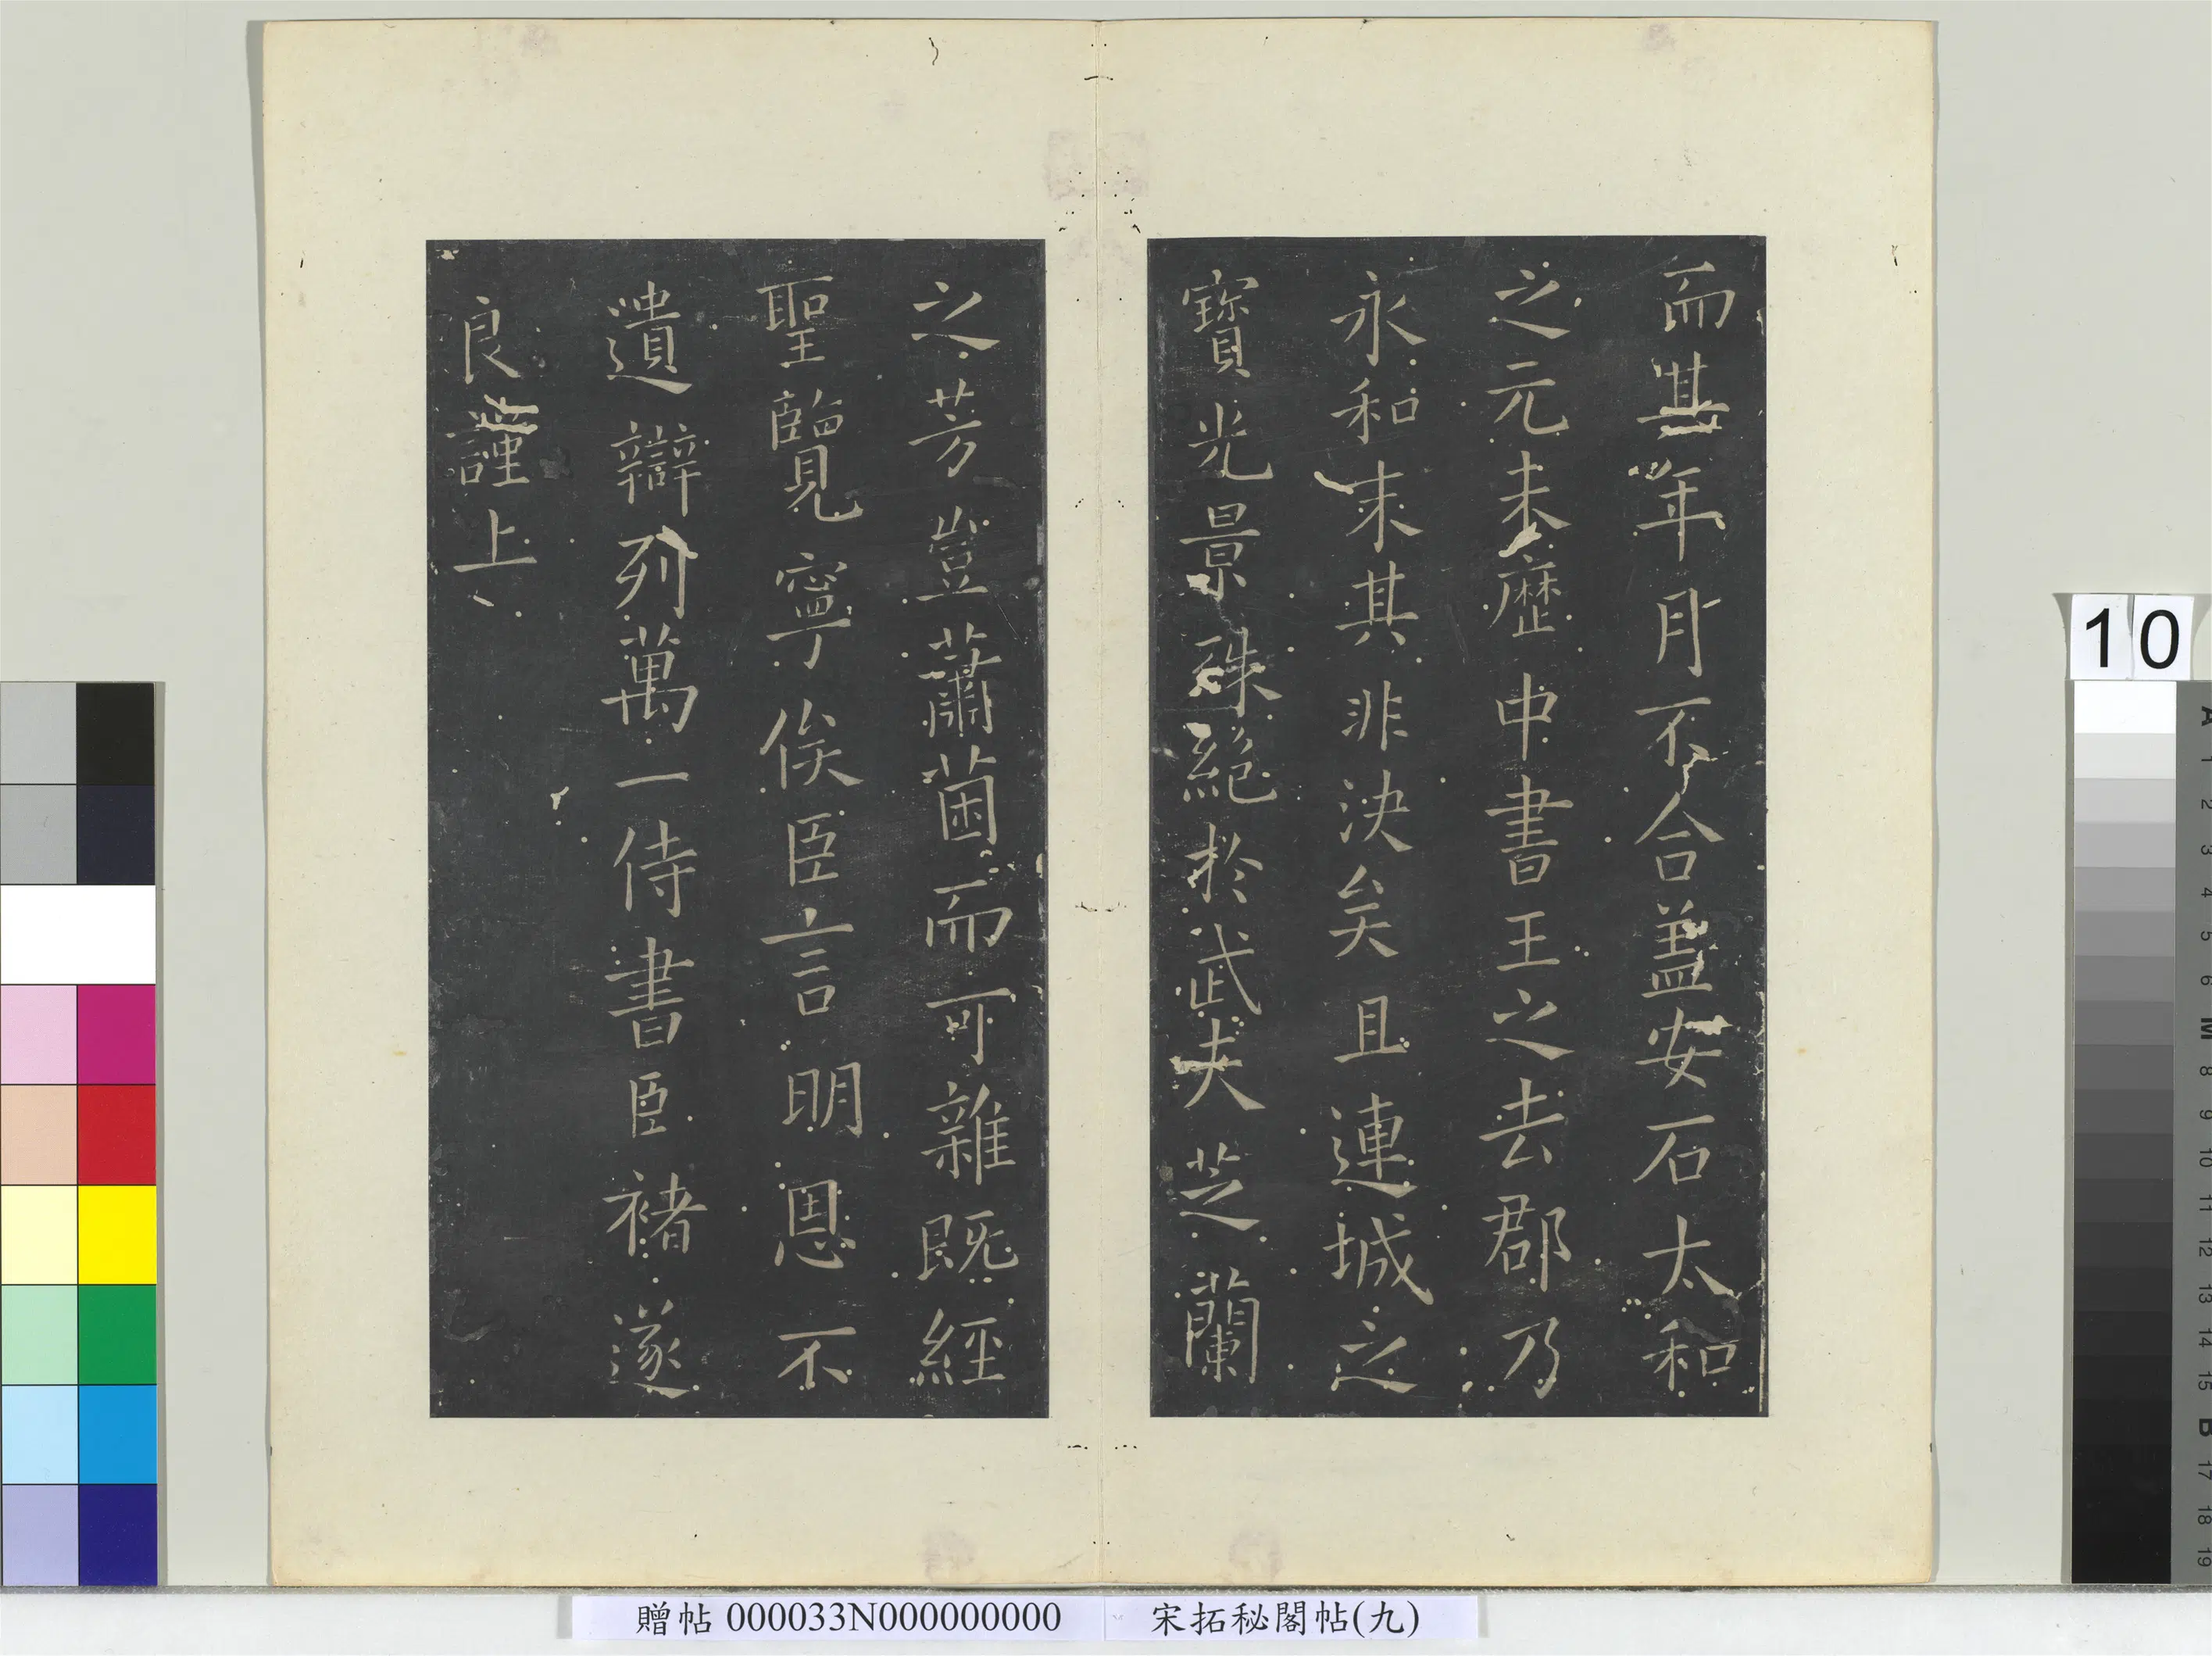 而其年月不合盖安石太和
之元未歷中書王之去郡乃
永和末其非決矣且連城之
寶光景殊絕於武夫芝蘭
之芳豈蕭茵而可雜既經
聖覽寧俟臣言明恩不
遺辯列萬一侍書臣褚遂
良謹上
10
A
1
2
3
4
5
6
M
8
9
10
11
12
13
14
15
B
17
18
19
贈帖 000033N000000000 宋拓秘閣帖(九)